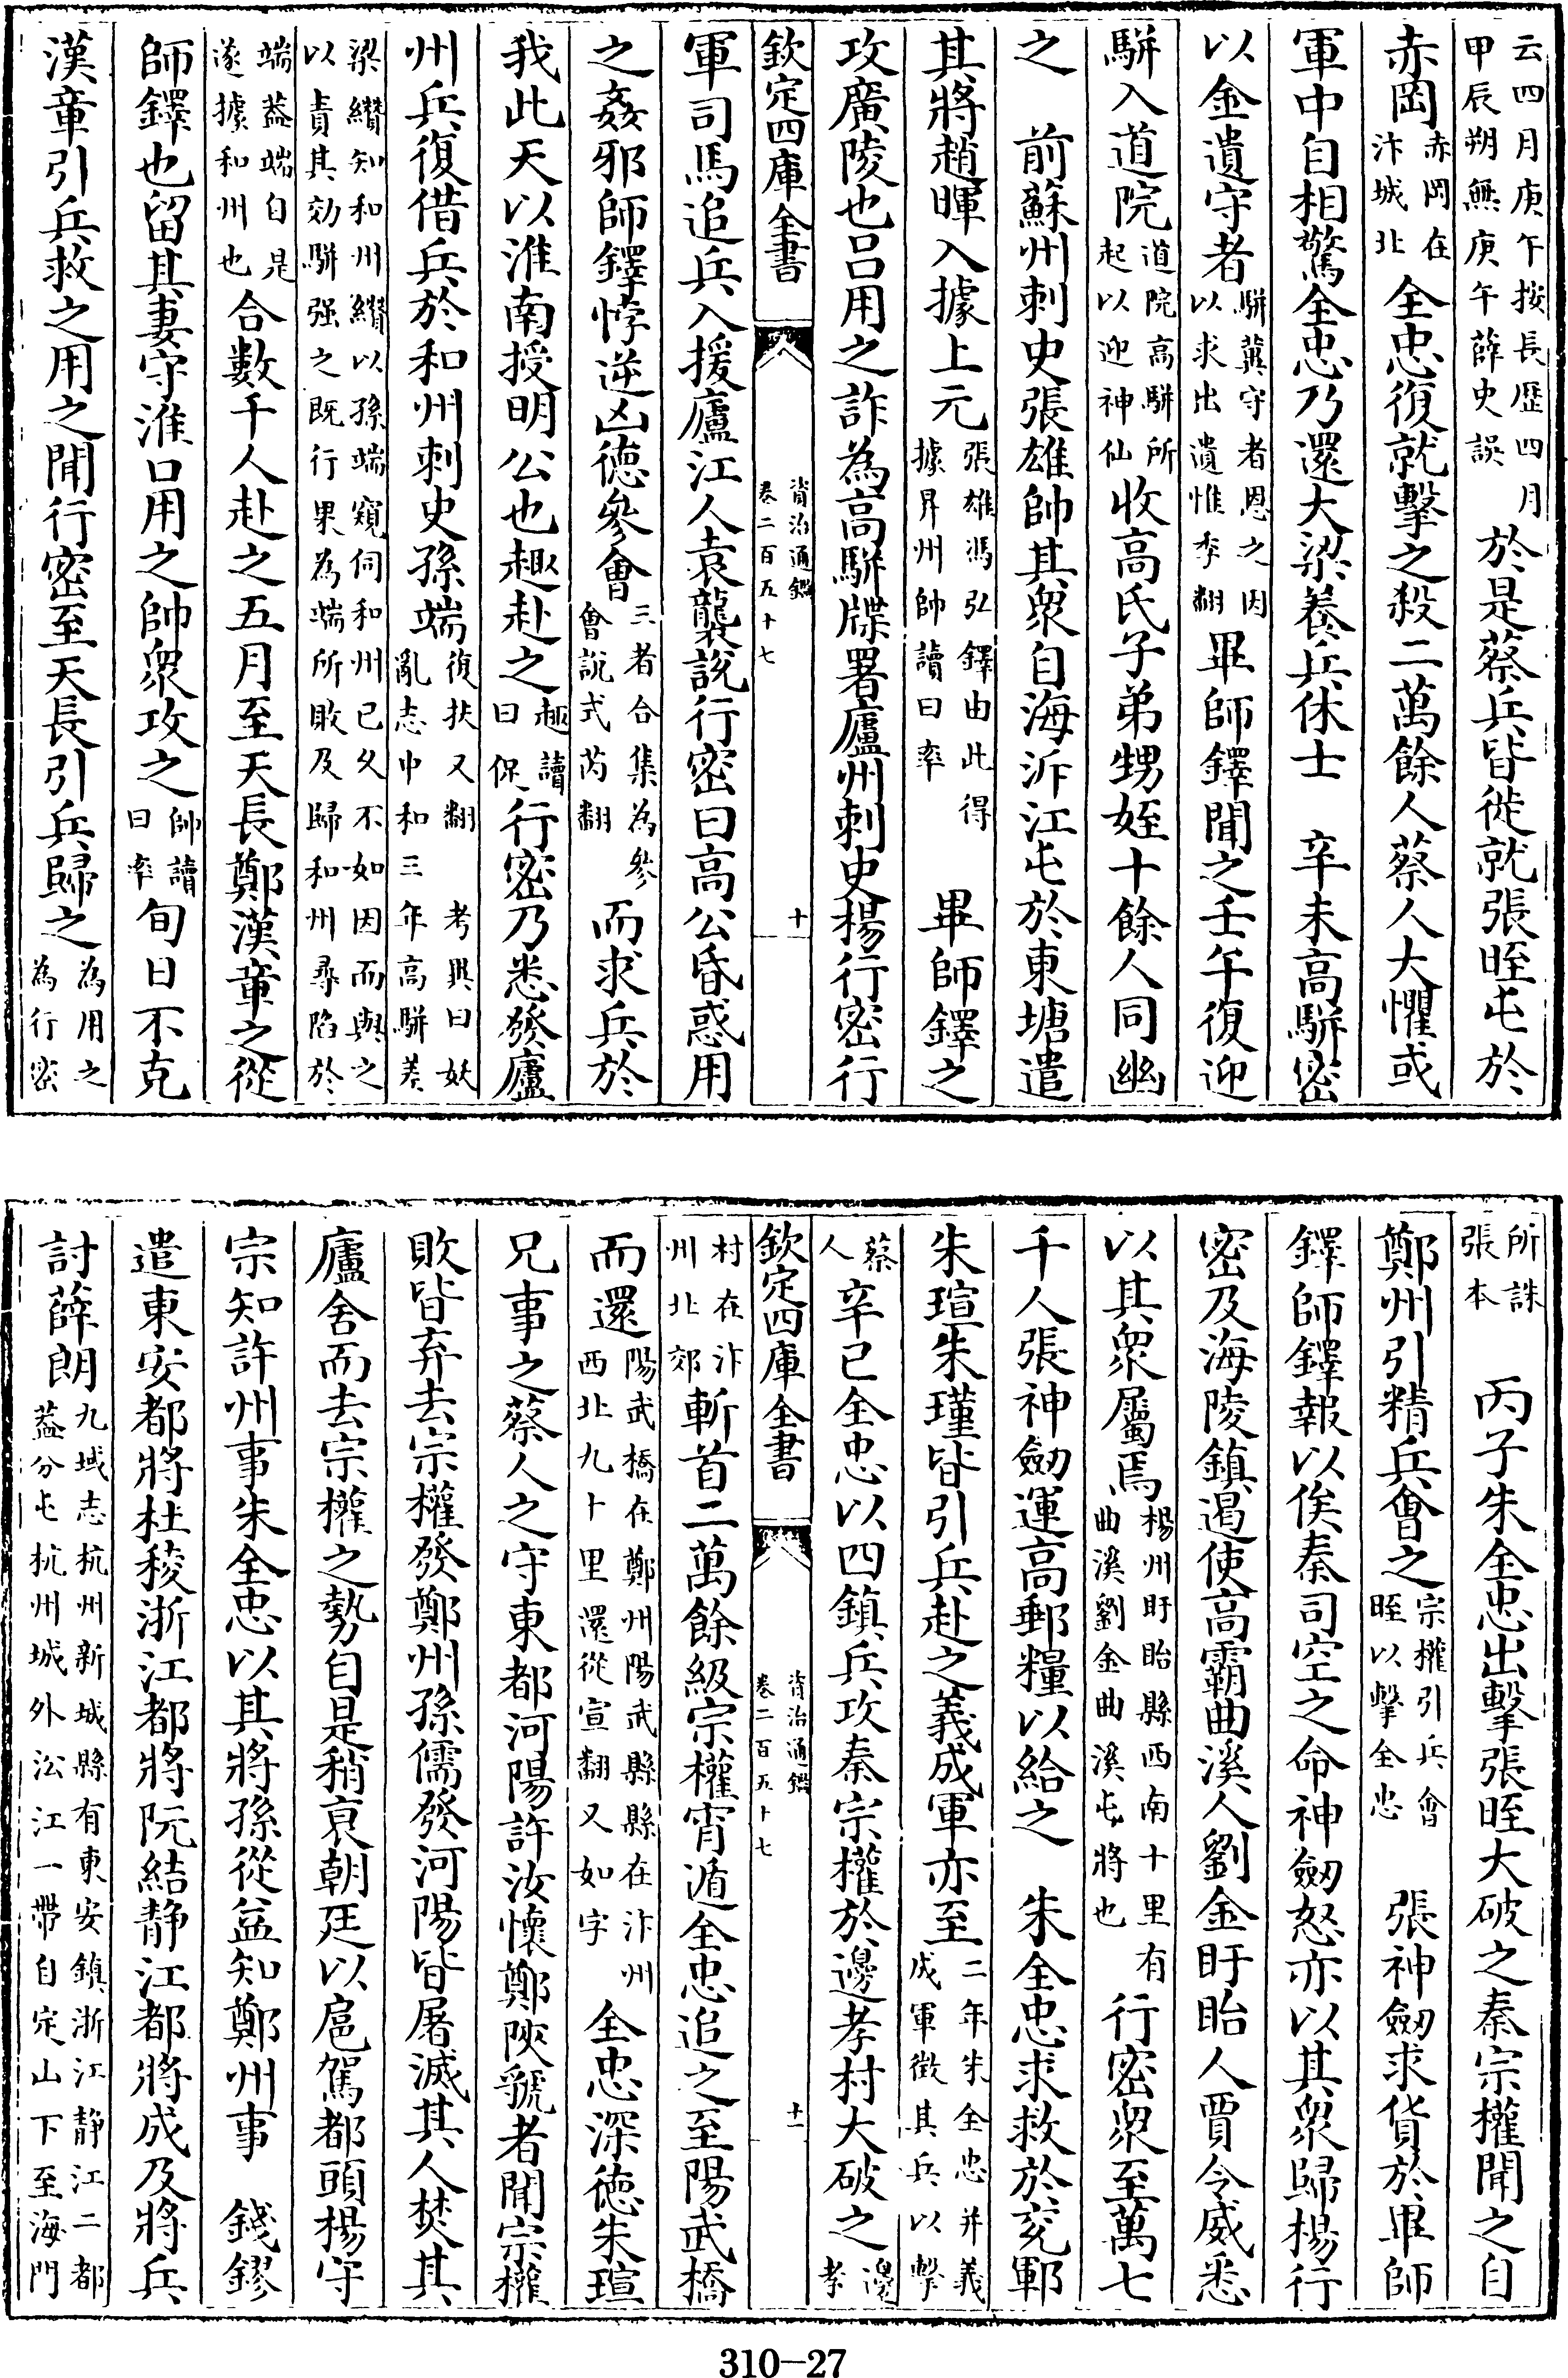 云四月庚午按長歴四月
甲辰朔無庚午薛史誤
於是蔡兵皆徙就張晊屯於
赤岡
赤岡在
汴城北
全忠復就擊之殺二萬餘人蔡人大懼或
軍中自相驚全忠乃還大梁養兵休士　辛未高駢密
以金遺守者
駢冀守者恩之因
以求出遺惟季翻
畢師鐸聞之壬午復迎
駢入道院
道院高駢所
起以迎神仙
收高氏子弟甥姪十餘人同幽
之　前蘇州刺史張雄帥其衆自海泝江屯於東塘遣
其將趙暉入據上元
張雄馮弘鐸由此得
據昇州帥讀曰率
畢師鐸之
攻廣陵也吕用之詐為高駢牒署廬州刺史楊行密行
欽定四庫全書
資治通鑑
卷二百五十七
十
軍司馬追兵入援廬江人袁襲說行密曰高公昏惑用
之姦邪師鐸悖逆凶德參會
三者合集為參
會說式芮翻
而求兵於
我此天以淮南授明公也趣赴之
趣讀
曰促
行密乃悉發廬
州兵復借兵於和州刺史孫端
復扶又翻　考異曰妖
亂志中和三年高駢差
梁纘知和州纘以孫端窺伺和州已久不如因而與之
以責其効駢强之既行果為端所敗及歸和州尋陷於
端葢端自是
遂據和州也
合數千人赴之五月至天長鄭漢章之從
師鐸也留其妻守淮口用之帥衆攻之
帥讀
曰率
旬日不克
漢章引兵救之用之聞行密至天長引兵歸之
為用之
為行密
所誅
張本
丙子朱全忠出擊張晊大破之秦宗權聞之自
鄭州引精兵會之
宗權引兵會
晊以擊全忠
張神劒求貨於畢師
鐸師鐸報以俟秦司空之命神劒怒亦以其衆歸楊行
密及海陵鎮遏使高霸曲溪人劉金盱眙人賈令威悉
以其衆屬焉
楊州盱眙縣西南十里有
曲溪劉金曲溪屯將也
行密衆至萬七
千人張神劒運高郵糧以給之　朱全忠求救於兖鄆
朱瑄朱瑾皆引兵赴之義成軍亦至
二年朱全忠并義
成軍徴其兵以擊
蔡
人
辛巳全忠以四鎮兵攻秦宗權於邊孝村大破之
邊
孝
欽定四庫全書
資治通鑑
卷二百五十七
十一
村在汴
州北郊
斬首二萬餘級宗權宵遁全忠追之至陽武橋
而還
陽武橋在鄭州陽武縣縣在汴州
西北九十里還從宣翻又如字
全忠深德朱瑄
兄事之蔡人之守東都河陽許汝懷鄭陜虢者聞宗權
敗皆弃去宗權發鄭州孫儒發河陽皆屠滅其人焚其
廬舍而去宗權之勢自是稍衰朝廷以扈駕都頭楊守
宗知許州事朱全忠以其將孫從益知鄭州事　錢鏐
遣東安都將杜稜浙江都將阮結静江都將成及將兵
討薛朗
九域志杭州新城縣有東安鎮浙江静江二都
葢分屯杭州城外㳂江一帶自定山下至海門
310-27